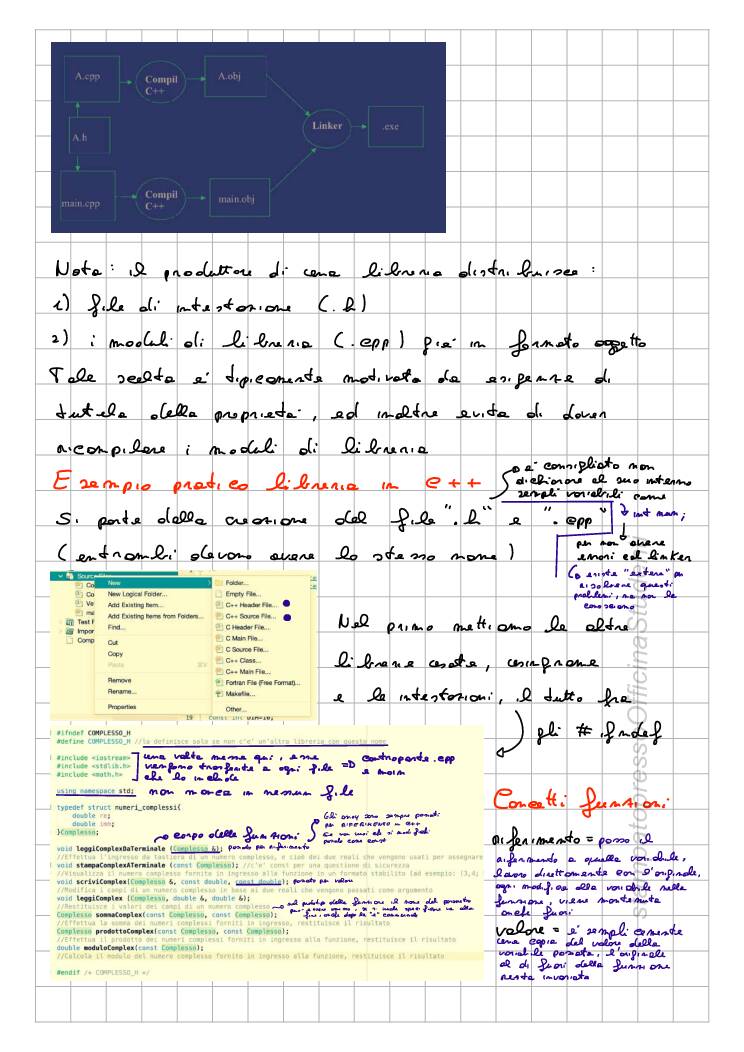 A.cpp
Compil
C++
A.obj
A.h
Linker
.exe
main.cpp
Compil
C++
main.obj
Nota: il produttore di una libreria distribuisce:
1) file di intestazione (.h)
2) i moduli di libreria (.cpp) già in formato oggetto
Tale scelta è tipicamente motivata da esigenze di
tutela della proprietà, ed inoltre evita di dover
ricompilare i moduli di libreria
Esempio pratico libreria in C++
è consigliato non
dichiarare al suo interno
semplici variabili come
int num;
per non avere
errori col linker
esiste "extern" per
risolvere questi
problemi, ma non lo
conosciamo
Si parte dalla creazione del file ".h" e ".cpp"
(entrambi devono avere lo stesso nome)
Source Files
New
New Logical Folder...
Add Existing Item...
Add Existing Items from Folders...
Find...
Cut
Copy
Paste
⌘V
Remove
Rename...
Properties
Co
Co
Ve
ma
Test F
Impor
Comp
Folder...
Empty File...
C++ Header File...
C++ Source File...
C Header File...
C Main File...
C Source File...
C++ Class...
C++ Main File...
Fortran File (Free Format)...
Makefile...
Other...
19 const int DIM=10;
Nel primo mettiamo le altre
librerie usate, using name
e le intestazioni, il tutto fra
gli #ifndef
#ifndef COMPLESSO_H
#define COMPLESSO_H //la definisce solo se non c'e' un'altra libreria con questo nome
#include <iostream>
#include <stdlib.h>
#include <math.h>
una volta messe qui, esse
vengono trasferite a ogni file
che lo include
=D controparte .cpp
e main
using namespace std; non manca in nessun file
typedef struct numeri_complessi{
double re;
double imm;
}Complesso;
corpo delle funzioni
Gli array sono sempre passati
per RIFERIMENTO in C++
void leggiComplexDaTerminale (Complesso &); passato per riferimento
//Effettua l'ingresso da tastiera di un numero complesso, e cioè dei due reali che vengono usati per assegnare
void stampaComplexATerminale (const Complesso); //c'e' const per una questione di sicurezza
//Visualizza il numero complesso fornito in ingresso alla funzione in un formato stabilito (ad esempio: (3,4;
void scriviComplex(Complesso &, const double, const double); passato per valore
//Modifica i campi di un numero complesso in base ai due reali che vengono passati come argomento
void leggiComplex (Complesso, double &, double &);
//Restituisce i valori dei campi di un numero complesso
Complesso sommaComplex(const Complesso, const Complesso);
//Effettua la somma dei numeri complessi forniti in ingresso, restituisce il risultato
Complesso prodottoComplex(const Complesso, const Complesso);
//Effettua il prodotto dei numeri complessi forniti in ingresso alla funzione, restituisce il risultato
double moduloComplex(const Complesso);
//Calcola il modulo del numero complesso fornito in ingresso alla funzione, restituisce il risultato
#endif /* COMPLESSO_H */
Concetti funzioni
riferimento = passo il
riferimento a quella variabile,
lavoro direttamente con l'originale,
ogni modifica alla variabile nella
funzione, viene mantenuta
anche fuori
valore = è semplicemente
una copia del valore della
variabile passata, l'originale
al di fuori della funzione
resta invariata
stampatopressoOfficinaStudenti